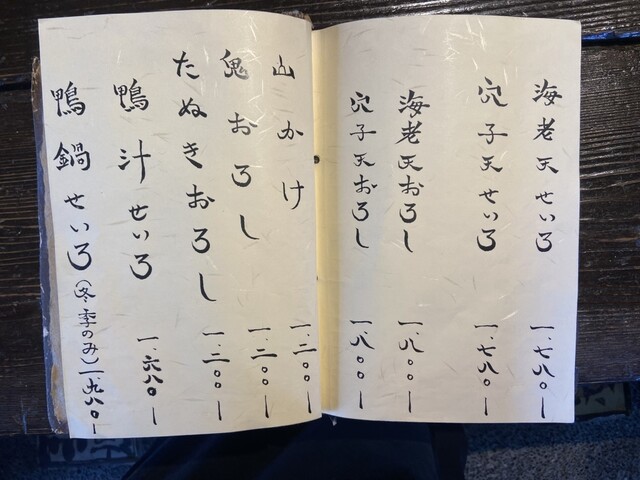 海老天せいろ 一、七八〇ー
穴子天せいろ 一、七八〇ー
海老天おろし 一、八〇〇ー
穴子天おろし 一、八〇〇ー
山かけ 一、二〇〇ー
鬼おろし 一、二〇〇ー
たぬきおろし 一、二〇〇ー
鴨汁せいろ 一、六八〇ー
鴨鍋せいろ(冬季のみ) 一、九八〇ー